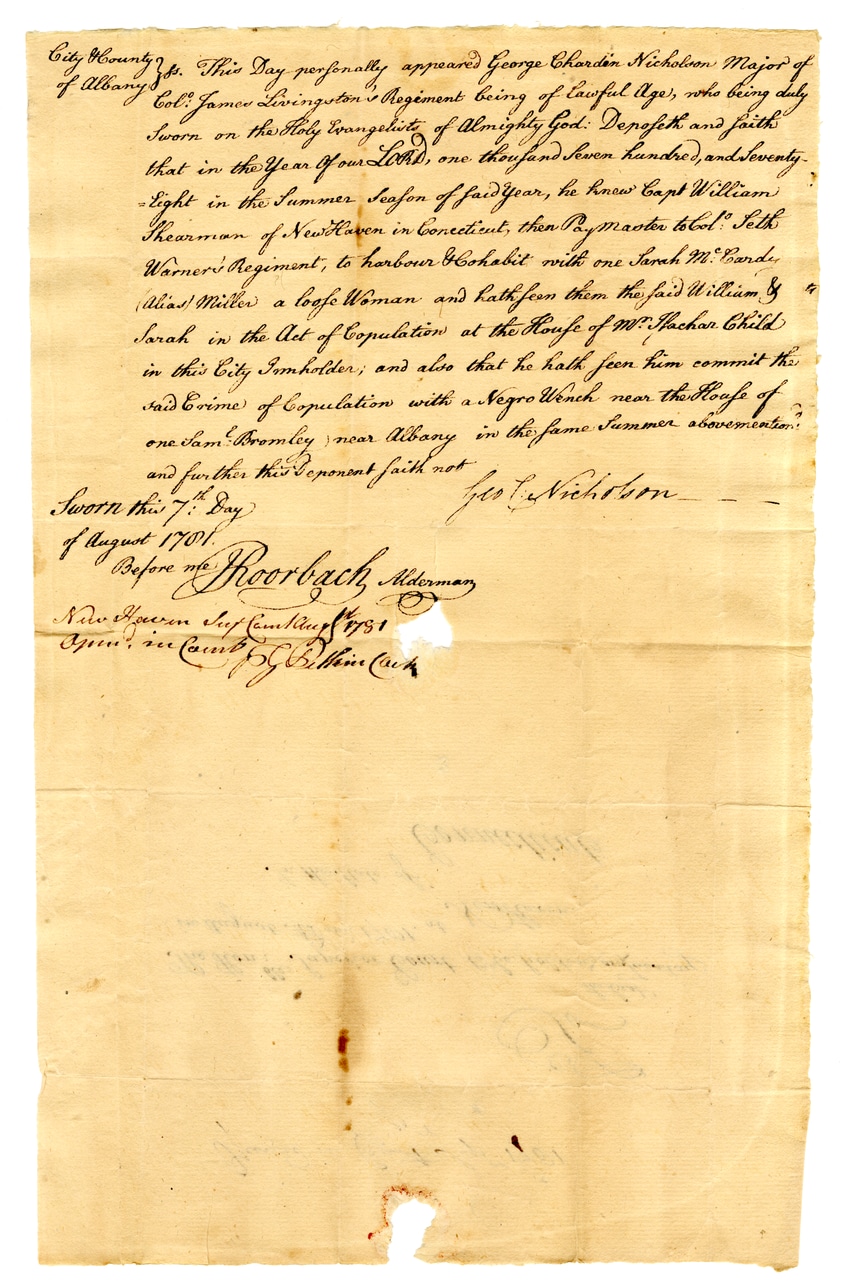 City & County } ss. This Day personally appeared George Chardin Nicholson Major of
of Albany
Colo. James Livingston's Regiment being of lawful Age, who being duly
Sworn on the Holy Evangelists of Almighty God: Deposeth and saith
that in the Year of our LORD, one thousand Seven hundred, and Seventy-
=Eight in the Summer Season of said Year, he knew Capt William
Shearman of New Haven in Conecticut, then Pay Master to Colo. Seth
Warner's Regiment, to harbour & Cohabit with one Sarah McCardy
(Alias) Miller a loose Woman and hath seen them the said William &
Sarah in the Act of Copulation at the House of Mr. Isachar Child
in this City Innholder; and also that he hath seen him commit the
said Crime of Copulation with a Negro Wench near the House of
one Saml. Bromley near Albany in the same Summer abovemention'd
and further this Deponent saith not
Geo C: Nicholson
Sworn this 7th. Day
of August 1781.
Before me JRoorbach Alderman
New Haven Supr Court Augt 1781
Open'd in Court
G Pitkin Clerk
Connecticut
in the State of
in August
The Honl. the Superior Court to be holden